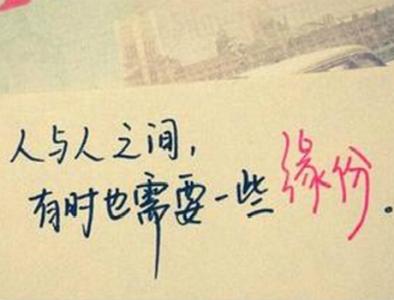 人与人之间，
有时也需要一些缘份。